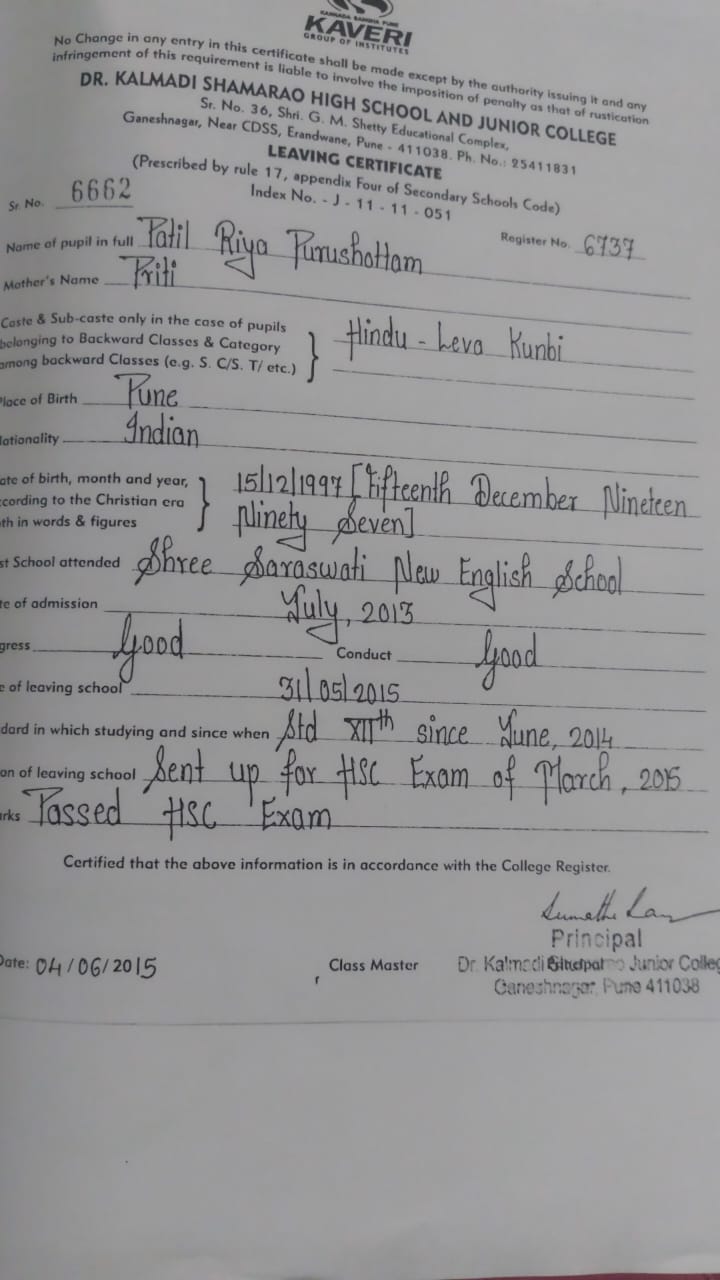 KANNADA SANGHA PUNE
KAVERI
GROUP OF INSTITUTES
No Change in any entry in this certificate shall be made except by the authority issuing it and any
infringement of this requirement is liable to involve the imposition of penalty as that of rustication
DR. KALMADI SHAMARAO HIGH SCHOOL AND JUNIOR COLLEGE
Sr. No. 36, Shri. G. M. Shetty Educational Complex,
Ganeshnagar, Near CDSS, Erandwane, Pune - 411038. Ph. No.: 25411831
LEAVING CERTIFICATE
(Prescribed by rule 17, appendix Four of Secondary Schools Code)
Index No. - J - 11 - 11 - 051
Sr. No. 6662
Register No. 6737
Name of pupil in full Patil Riya Purushottam
Mother's Name Priti
Caste & Sub-caste only in the case of pupils
belonging to Backward Classes & Category
among backward Classes (e.g. S. C/S. T/ etc.)
Hindu - Leva Kunbi
Place of Birth Pune
Nationality Indian
ate of birth, month and year,
ccording to the Christian era
th in words & figures
15/12/1997 [Fifteenth December Nineteen
Ninety Seven]
st School attended Shree Saraswati New English School
te of admission July, 2013
gress Good Conduct Good
e of leaving school 31/05/2015
dard in which studying and since when Std XIIth since June, 2014
on of leaving school Sent up for HSC Exam of March, 2015
arks Passed HSC Exam
Certified that the above information is in accordance with the College Register.
Date: 04/06/2015
Class Master
Principal
Principal
Dr. Kalmadi Junior Colleg
Ganeshnagar, Pune 411038